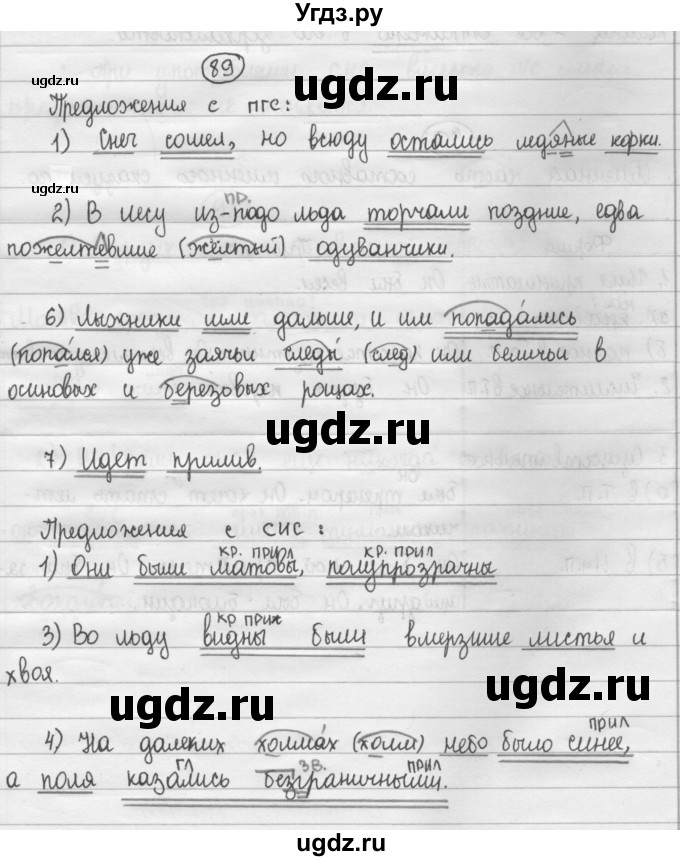 Угдз.ру
89
ugdz.ru ugdz.ru
Предложения с пгс:
ugdz.ru
1) Снег сошел, но всюду остались ледяные корки.
ugdz.ru
пр.
2) В лесу из-подо льда торчали поздние, едва
пожелтевшие (жёлтый) одуванчики.
ugdz.ru
6) Лыжники шли дальше, и им попадались
(попался) уже заячьи следы (след) или беличьи в
осиновых и березовых рощах.
ugdz.ru
ugdz.ru
7) Идет прилив.
Предложения с СИС:
ugdz.ru
кр. прил кр. прил
1) Они были матовы, полупрозрачны
кр прил
3) Во льду видны были вмерзшие листья и
хвоя.
ugdz.ru
ugdz.ru
прил
4) На далеких холмах (холм) небо было синее,
гл зв. прил
а поля казались безграничными.
ugdz.ru
ugdz.ru